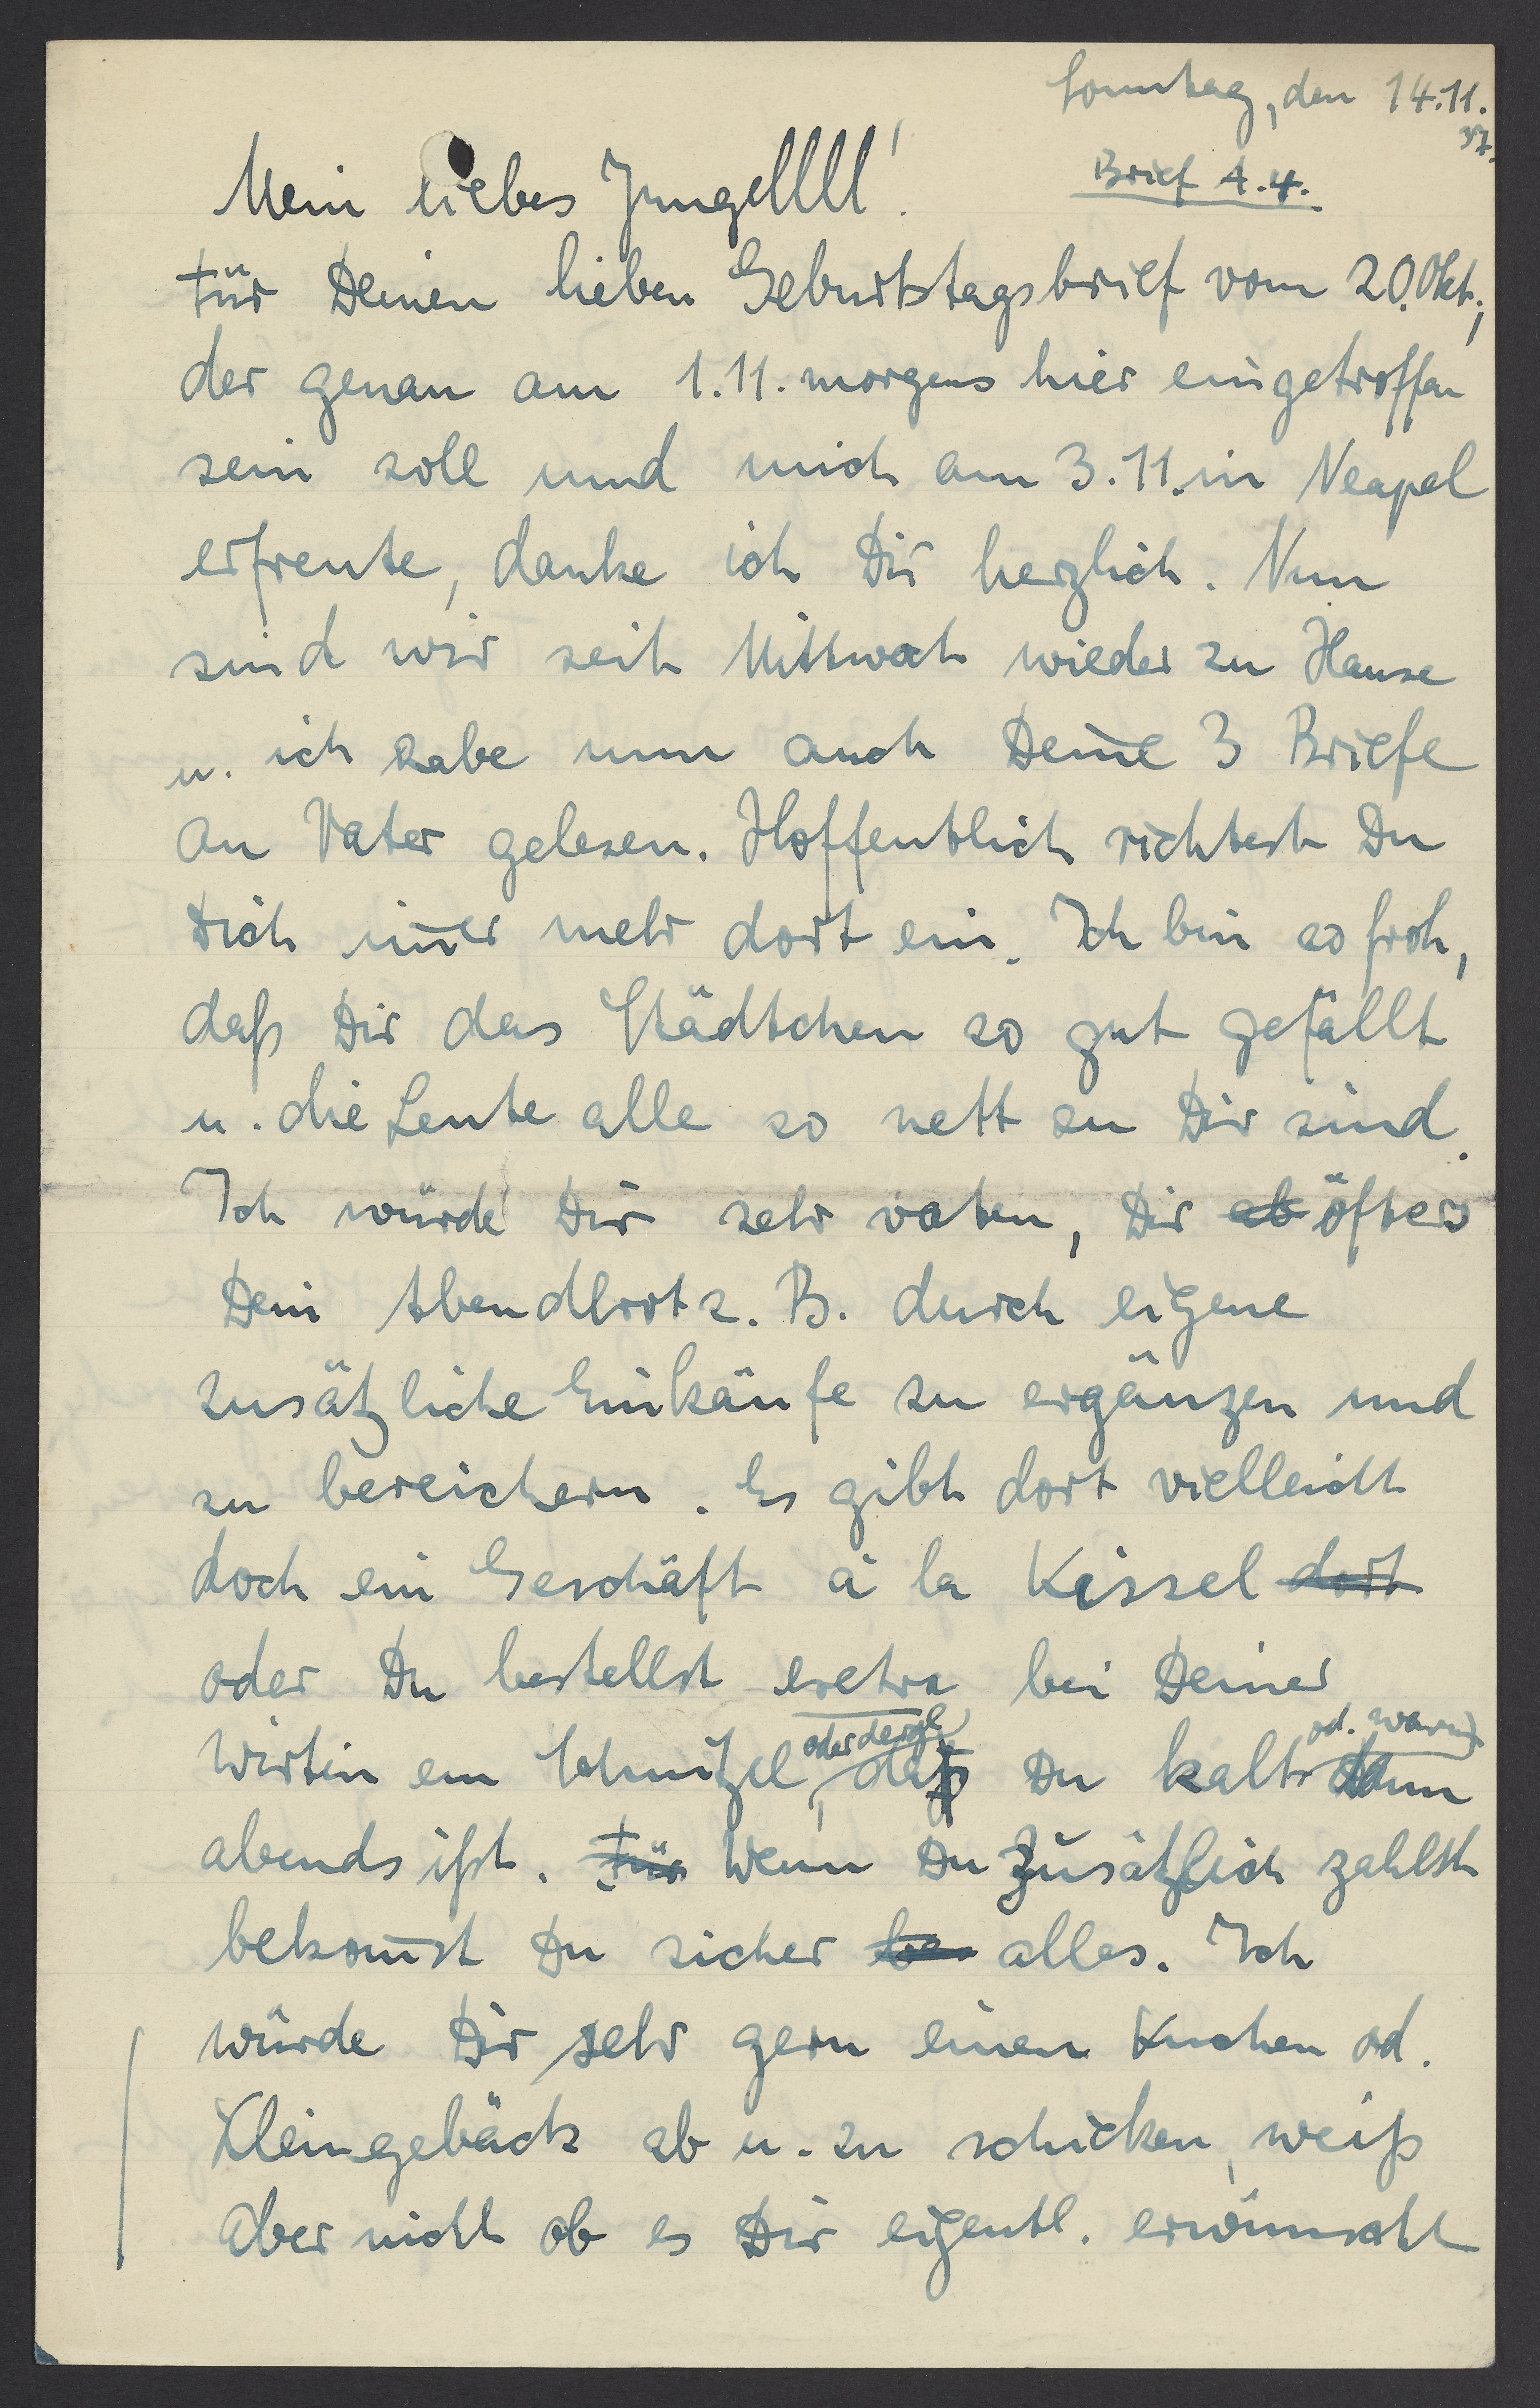 Sonntag, den 14.11.
37.
Brief A.4.
Mein liebes Jungellll!
Für Deinen lieben Geburtstagsbrief vom 20. Okt.,
der genau am 1.11. morgens hier eingetroffen
sein soll und mich am 3.11. in Neapel
erfreute, danke ich Dir herzlich. Nun
sind wir seit Mittwoch wieder zu Hause
u. ich habe nun auch Deine 3 Briefe
an Vater gelesen. Hoffentlich richtest Du
Dich im̅er mehr dort ein. Ich bin so froh,
daß Dir das Städtchen so gut gefällt
u. die Leute alle so nett zu Dir sind.
Ich würde Dir sehr raten, Dir ab öfters
Dein Abendbrot z. B. durch eigene
zusätzliche Einkäufe zu ergänzen und
zu bereichern. Es gibt dort vielleicht
doch ein Geschäft à la Kissel dort
oder Du bestellst extra bei Deiner
oder dergl. od. warm
Wirtin ein Schnitzel, daß Du kalt dann
abends ißt. Für Wenn Du zusätzlich zahlst
bekom̅st Du sicher be alles. Ich
würde Dir sehr gern einen Kuchen od.
Kleingebäck ab u. zu schicken, weiß
aber nicht ob es Dir eigentl. erwünscht